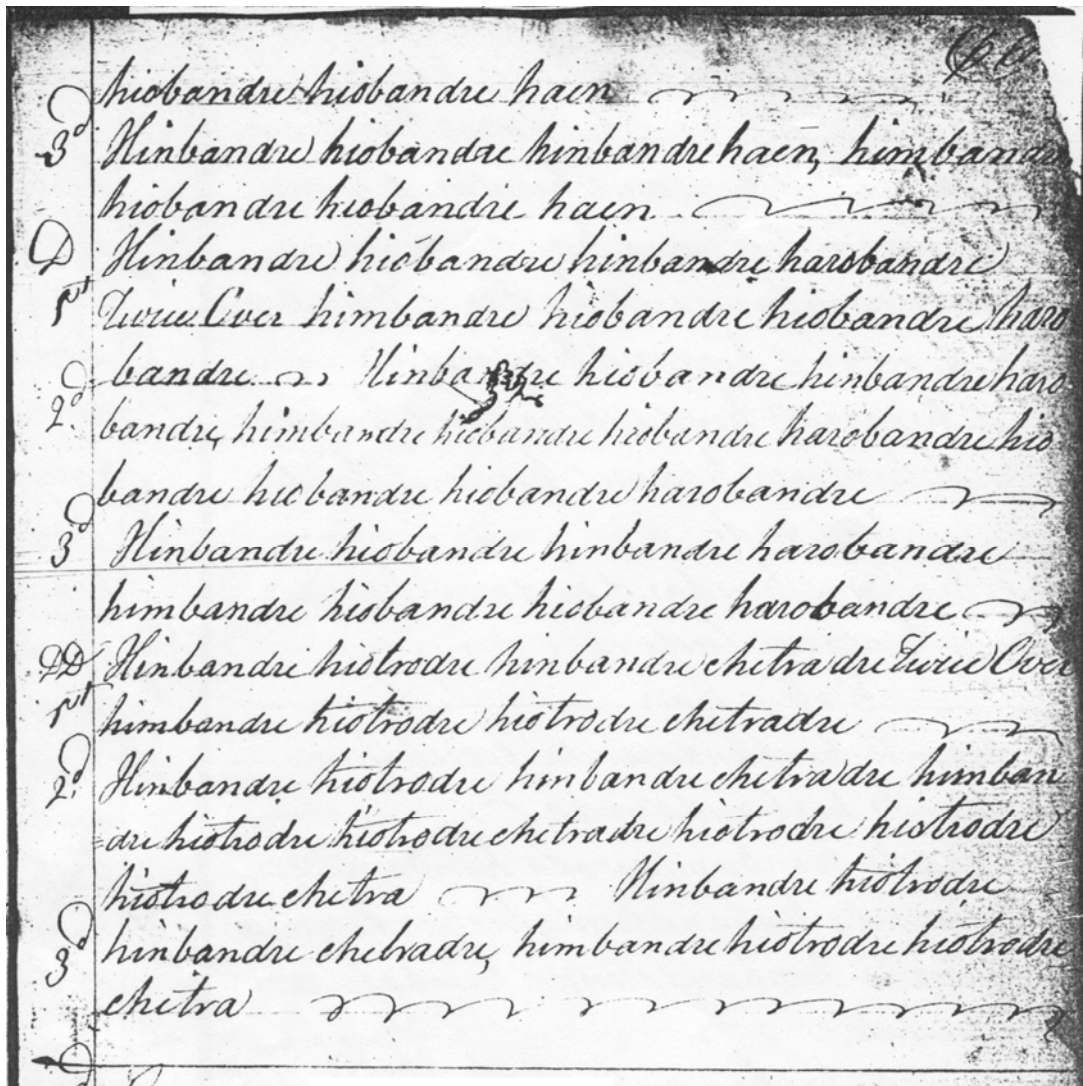 60
hiobandre hiobandre haen
3d Hinbandre hiobandre hinbandre haen, himbandre
hiobandre hiobandre haen
D Hinbandre hiobandre hinbandre harobandre
1st Twice Over himbandre hiobandre hiobandre haro
bandre Hinbandre hiobandre hinbandre haro
2d. bandre, himbandre hiobandre hiobandre harobandre hio
bandre hiobandre hiobandre harobandre
3d Hinbandre hiobandre hinbandre harobandre
himbandre hiobandre hiobandre harobandre
DD Hinbandre hiotrodre hinbandre chetradre Twice Over
1st himbandre hiotrodre hiotrodre chetradre
2d. Hinbandre hiotrodre hinbandre chetradre himban
=dre hiotrodre hiotrodre chetradre hiotrodre hiotrodre
hiotrodre chetra Hinbandre hiotrodre
3d hinbandre chetradre, himbandre hiotrodre hiotrodre
chetra